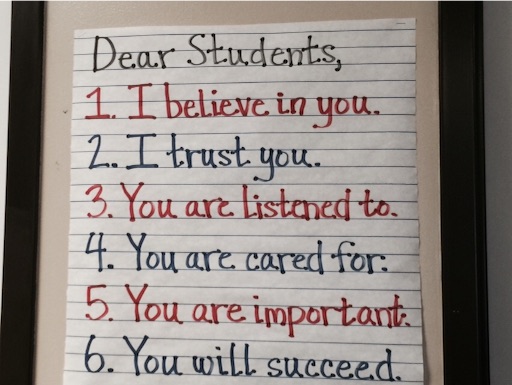 Dear Students,
1. I believe in you.
2. I trust you.
3. You are listened to.
4. You are cared for.
5. You are important.
6. You will succeed.